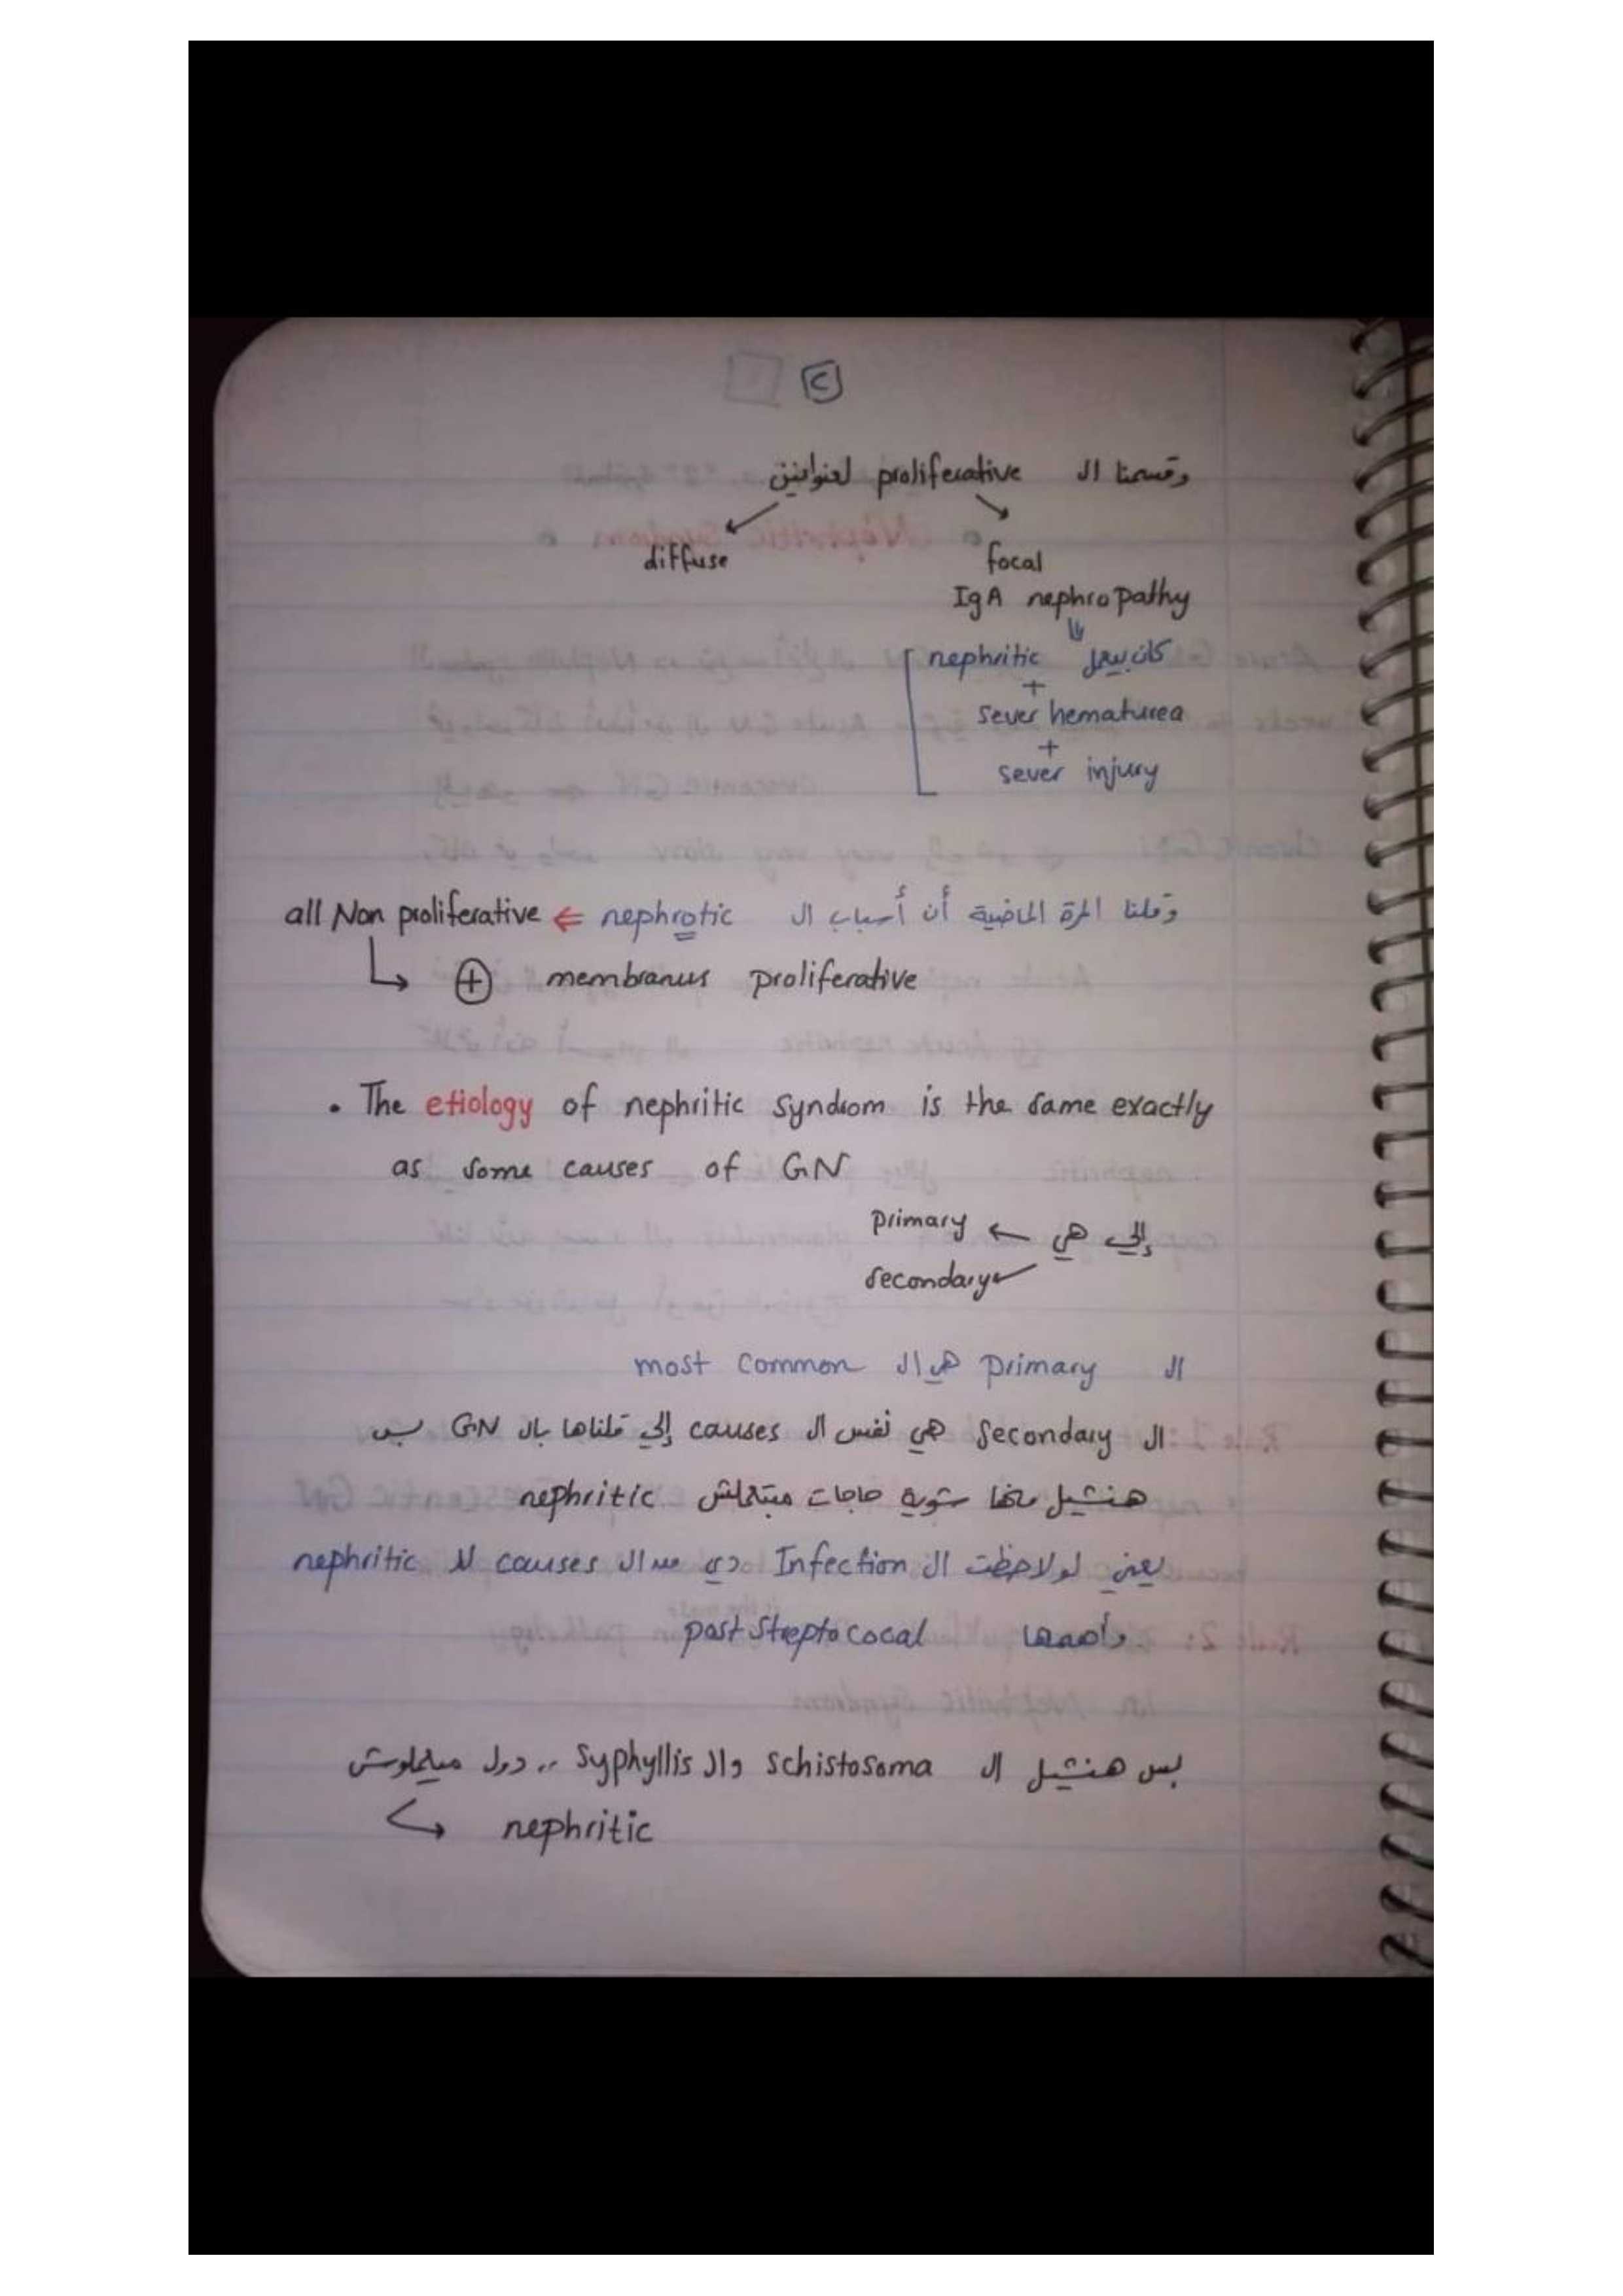 C
وقسمنا ال proliferative لعنوانين
diffuse focal
IgA nephropathy
كان بيعمل nephritic
+
sever hematurea
+
sever injury
وقلنا المرة الماضية أن أسباب ال nephrotic ⇐ all Non proliferative
↳ ⊕ membranus proliferative
• The etiology of nephritic syndrom is the same exactly
as some causes of GN
إلي هي ← primary
secondary
ال primary هي ال most common
ال secondary هي نفس ال causes إلي قلناها بال GN بس
هنشيل منها شوية حاجات مبتعملش nephritic
يعني لو لاحظت ال Infection دي من ال causes لل nephritic
وأهمها post streptococal
بس هنشيل ال schistosoma وال syphyllis .. دول مبيعملوش
↳ nephritic